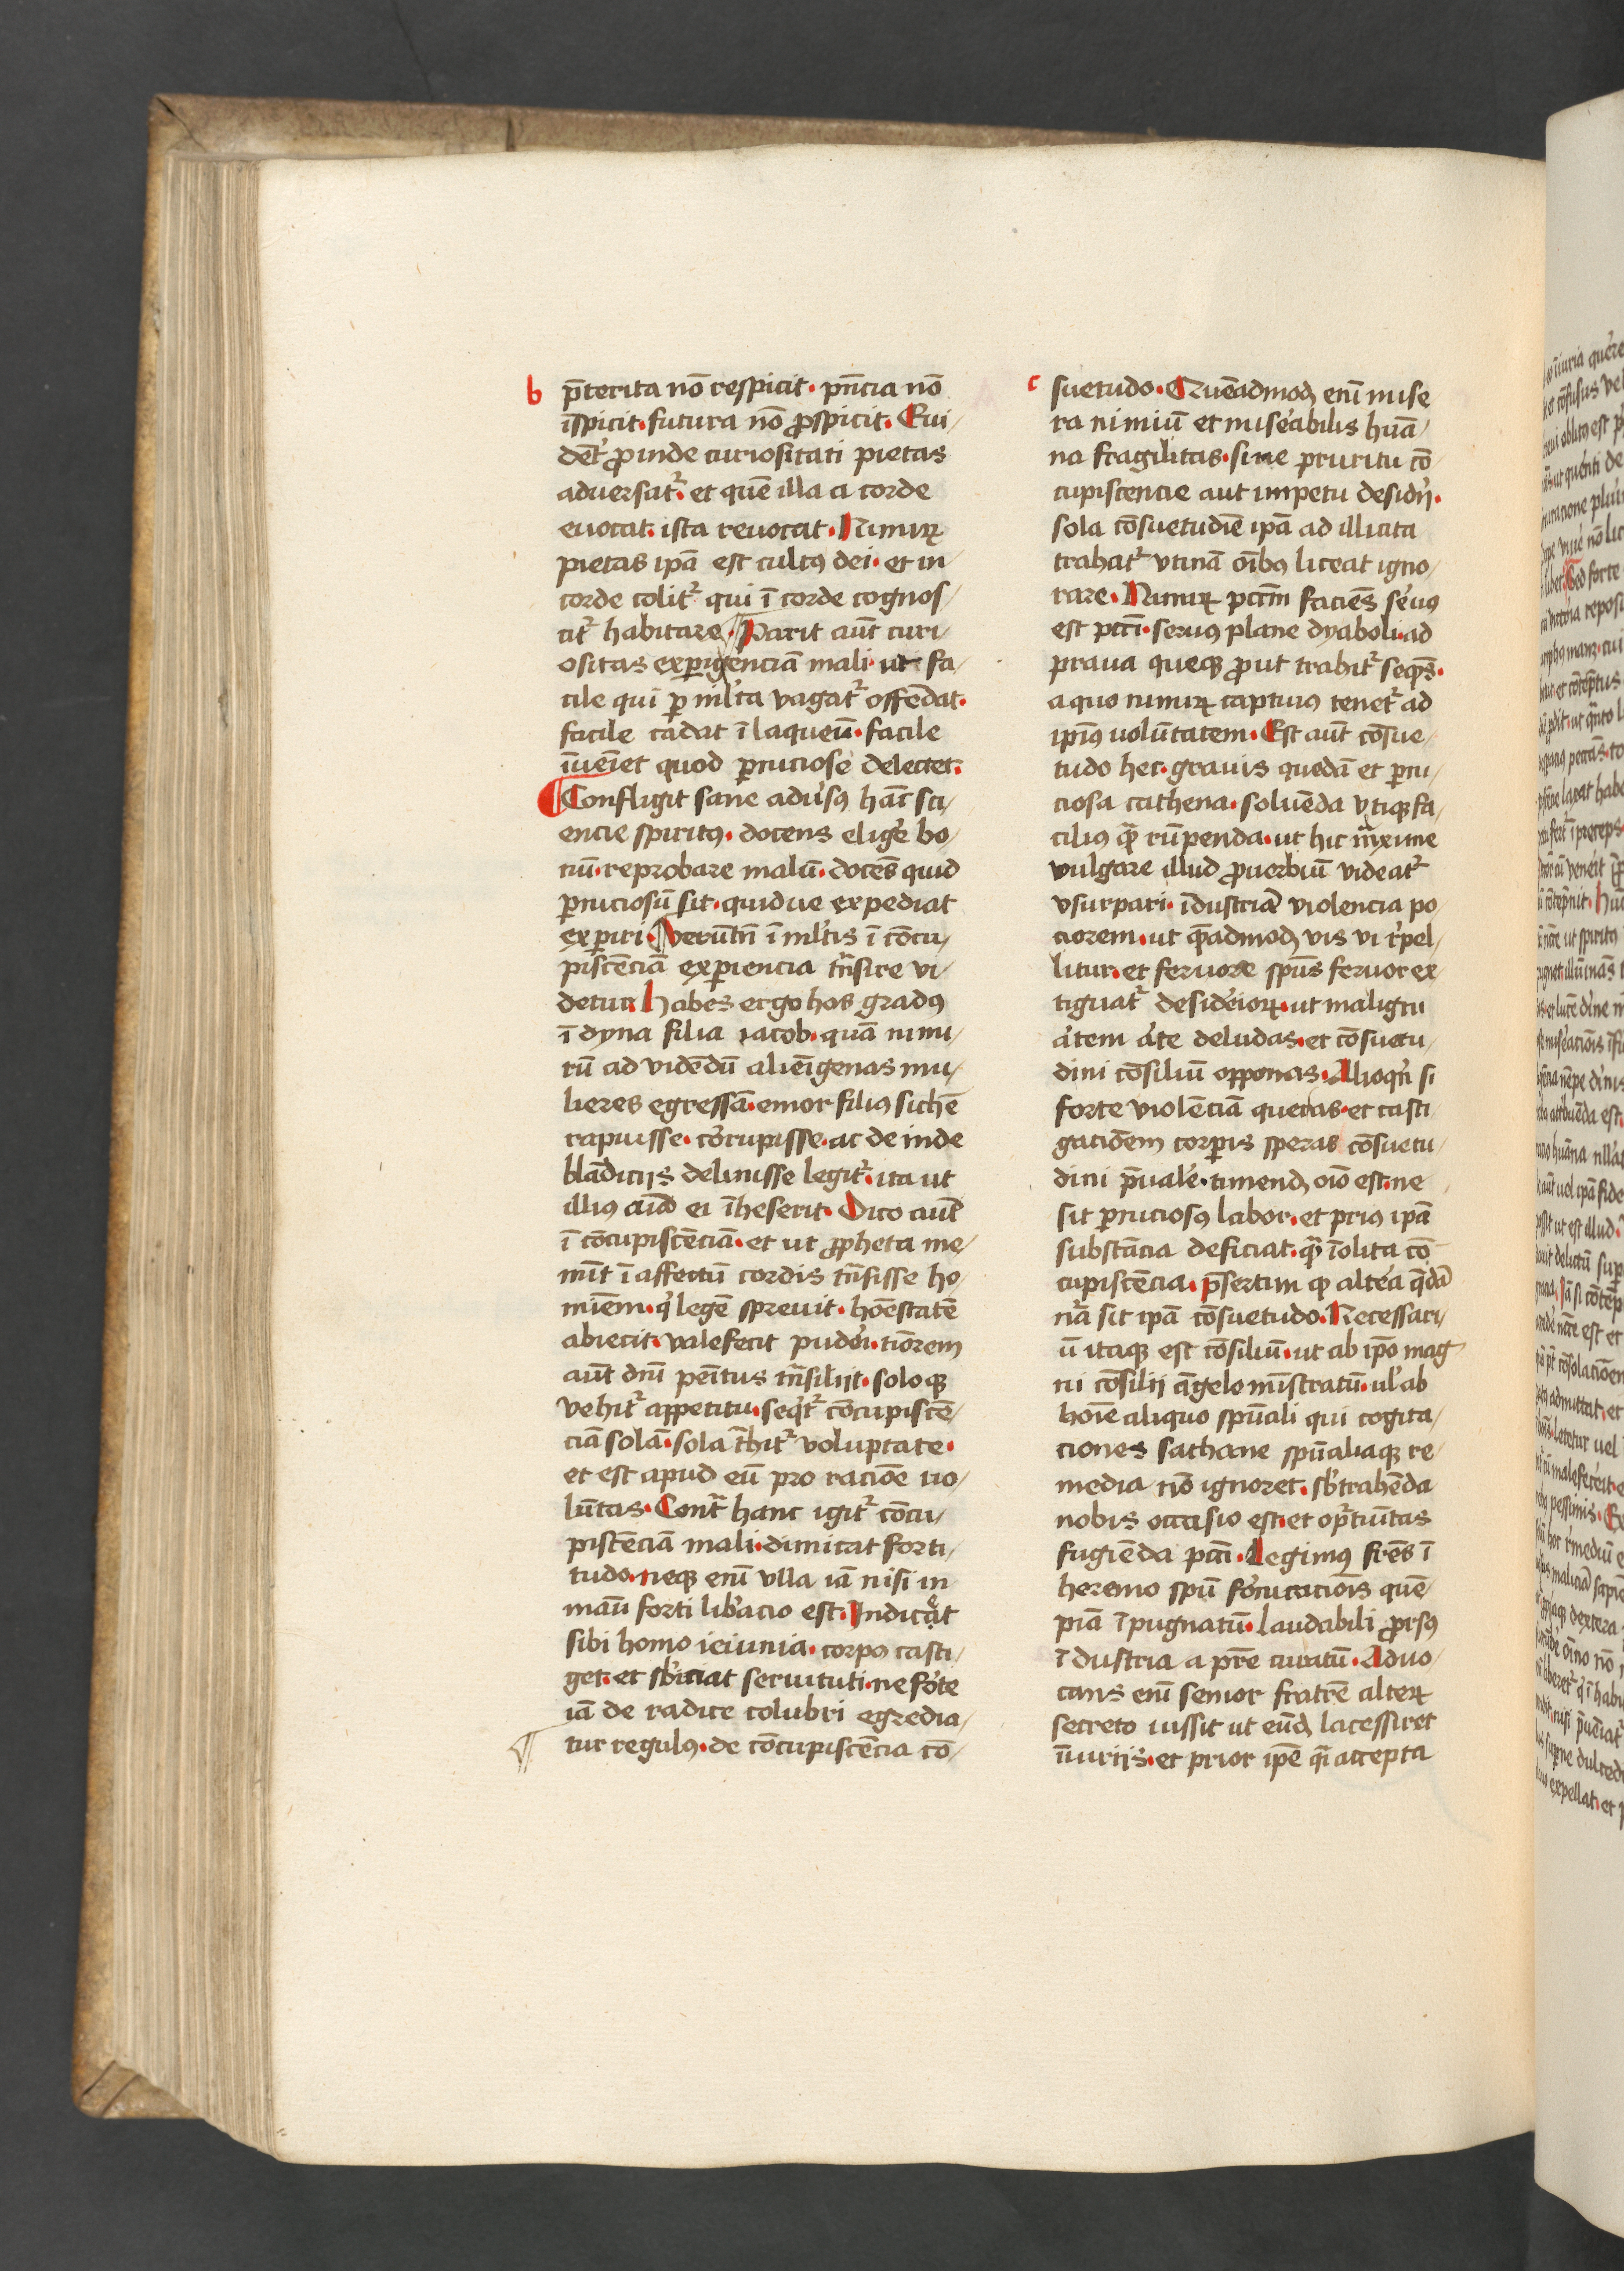 b
p̄terita nō respicit · pn̄cia nō
īspicit · futura nō ꝓspicit · Eui/
dēt᷒ ꝓinde curiositati pietas
aduersat᷒ · et quē illa a corde
euocat · ista reuocat · Nimirꝝ
pietas ipā est cultꝰ dei · et in/
corde colit᷒ qui ī corde cognos/
cit᷒ habitare · Parit aūt curi/
ositas experigenciā mali · ut fa/
cile qui ꝑ ml̓ta vagat᷒ offēdat ·
facile cadat ī laqueū · facile
īueīet quod ꝑniciose delectet ·
¶ Confligit sane adūsꝰ hāc sci/
encie spiritꝰ · docens elig̓e bo/
nū · reprobare malū · docēs quid
ꝑniciosū sit · quidue expediat
exꝑiri · Verūtn̄ ī ml̓tis ī cōcu/
piscēciā exꝑiencia tn̄sire vi/
detur · Habes ergo hos gradꝰ
ī dyna filia iacob · quā nimi/
rū ad vidēdū alienīgenas mu/
lieres egressā · emor filiꝰ sichē
rapuisse · corrupisse · ac de inde
blādiciis delinisse legit᷒ · ita ut
illiꝰ aīa ei īheserit · Dico aūt
ī cōcupiscēciā · et ut ꝓpheta me/
mīt ī affectū cordis tn̄sisse ho/
mīem · q̓ legē spreuit · hōestatē
abiecit · valefecit pudo᷒i · tīorem
aūt dn̄i peītus tn̄siliit · soloꝗꝫ
vehit᷒ appetitu · seqt᷒ cōcupiscē/
ciā solā · sola th̄it᷒ voluptate ·
et est apud eū pro raciōe uo/
lūtas · Contᷓ hanc igit᷒ cōcu/
piscēciā mali · dimicat forti/
tudo · neqꝫ enī vlla iā nisi in
manū forti lib̓acio est · Indicat
sibi homo ieiunia · corpꝰ casti/
get · et sb̓iciat seruituti · ne fo᷒te
iā de radice colubri egredia/
tur regulꝰ · de cōcupiscēcia cō/
c
suetudo · Quēadmodꝫ enī mise
ra nimiū et mise᷒abilis hūa/
na fragilitas · sine pruritu cō
cupiscencie aut impetu desid̓ij ·
sola cōsuetudīe ipā ad illicita
trahat᷒ vtinā oībꝰ liceat igno/
rare · Nimirꝝ pccm̄ faciēs se᷒uꝰ
est pccī · seruꝰ plane dyaboli · ad
praua queqꝫ ꝓut trahit᷒ seqn̄s ·
a quo nimirꝝ captiuꝰ tenet᷒ ad
ipīꝰ uolūtatem · Est aūt cōsue/
tudo hec · grauis quedā et ꝑni/
ciosa cathena · soluēda vtiqꝫ fa/
ciliꝰ qᷓ rūpenda · ut hic maxime
vulgare illud ꝓuerbiū videat᷒
vsurpari · īdustriā violencia po/
ciorem · ut qᷓadmodꝫ vis vi r̓pel/
litur · et feruore spūs feruor ex/
tiguat᷒ deside᷒ioꝝ · ut maligni
a᷒tem a᷒te deludas · et cōsuetu/
dini cōsiliū opponas · Alioqn̄ si
forte violēciā queras · et casti
gaciōem corꝑis speras cōsuetu/
dini p̄uale᷒ · timendꝫ oīo est · ne
sit ꝑniciosꝰ labor · et priꝰ ipā
substācia deficiat · qᷓ īolita cō
cupiscēcia · p̄sertim qꝫ alte᷒a qᷓdā
nr̄a sit ipā cōsuetudo · Necessari/
ū itaqꝫ est cōsiliū · ut ab ip̄o mag
ni cōsilii āgelo mīstratū · ul̓ ab
hoīe aliquo spūali qui cogita/
ciones sathane spūaliaqꝫ re/
media nō ignoret · sb̓trahēda
nobis occasio est · et op̄tuītas
fugiēda pccī · Legimꝰ frēs ī
heremo spū fo᷒nicaciōis quē/
piā īpugnatū · laudabili ꝓrsꝰ
īdustria a pr̄e curatū · Aduo/
cans enī senior fratrē alteꝝ
secreto iussit ut eūdꝫ lacessiret
īiuriis · et prior ip̄e qᷓi accepta